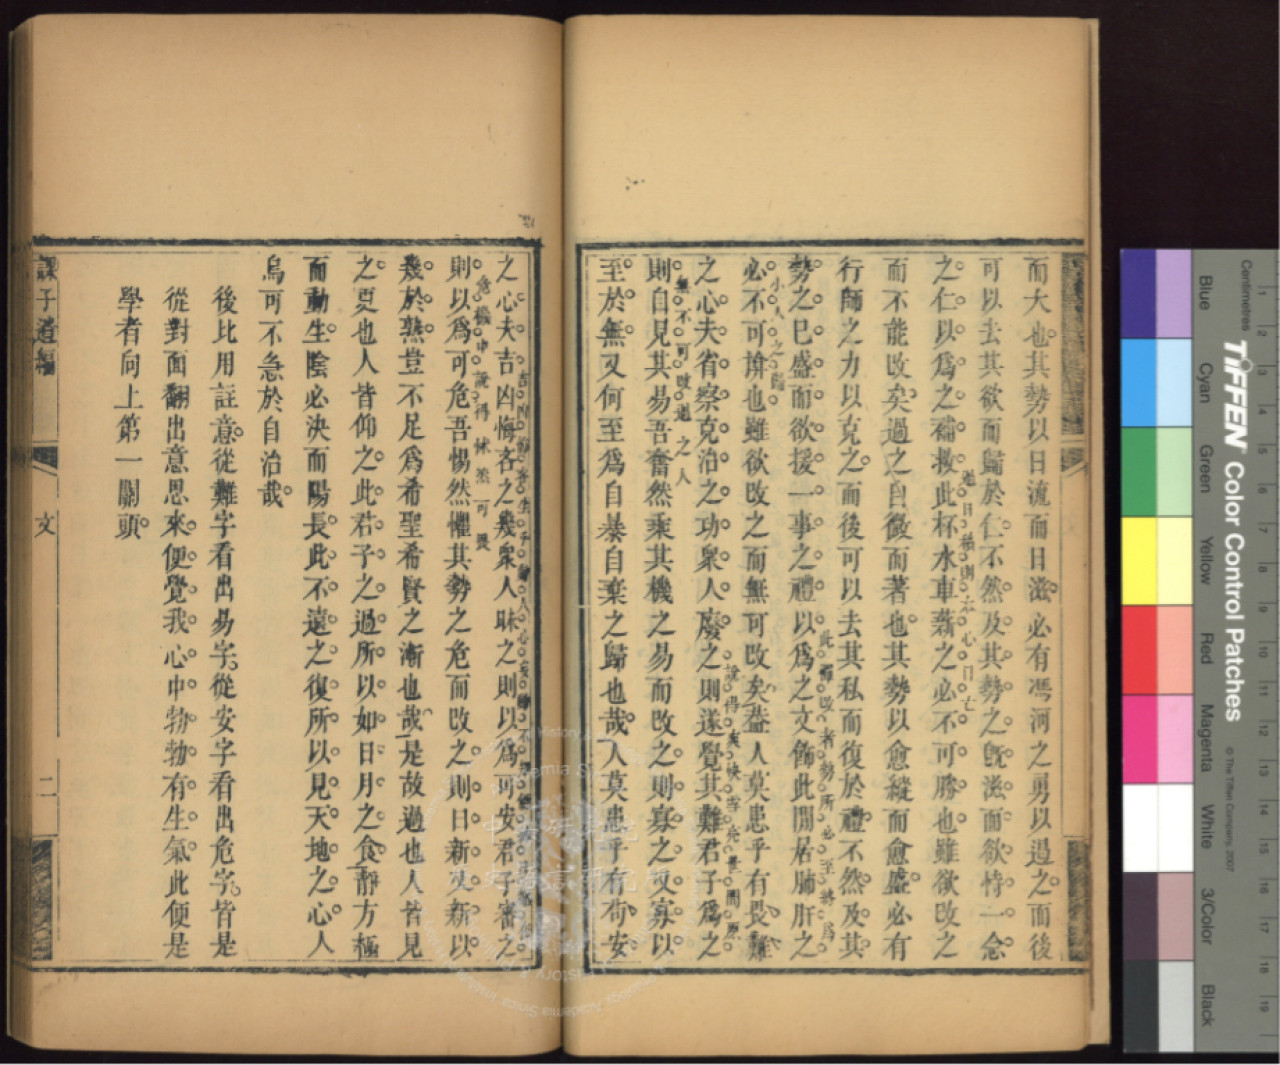 而大也其勢以日流而日滋必有馮河之勇以遏之而後
可以去其欲而歸於仁不然及其勢之既滋而欲恃一念
過日積則本心日亡
之仁以為之補救此杯水車薪之必不可勝也雖欲改之
而不能改矣過之自微而著也其勢以愈縱而愈盛必有
行師之力以克之而後可以去其私而復於禮不然及其
此飾改者勢所必至將為
勢之已盛而欲援一事之禮以為之文飾此閒居肺肝之
小人之歸
必不可揜也雖欲改之而無可改矣葢人莫患乎有畏難
說得爽快
之心夫省察克治之功衆人廢之則遂覺其難君子為之
無不可改過之人
則自見其易吾奮然乘其機之易而改之則寡之又寡以
至於無又何至為自暴自棄之歸也哉人莫患乎有苟安
之心夫吉凶悔吝之幾衆人昧之則以為可安君子審之
危機中說得悚然可畏
則以為可危吾惕然懼其勢之危而改之則日新又新以
幾於熟豈不足為希聖希賢之漸也哉是故過也人皆見
之更也人皆仰之此君子之過所以如日月之食靜方極
而動生陰必決而陽長此不遠之復所以見天地之心人
烏可不急於自治哉
後比用註意從難字看出易字從安字看出危字皆是
從對面翻出意思來便覺我心中勃勃有生氣此便是
學者向上第一關頭
課子遺編
文
二
Centimetres
TIFFEN Color Control Patches
© The Tiffen Company, 2007
Blue
Cyan
Green
Yellow
Red
Magenta
White
3/Color
Black
1
2
3
4
5
6
7
8
9
10
11
12
13
14
15
16
17
18
19